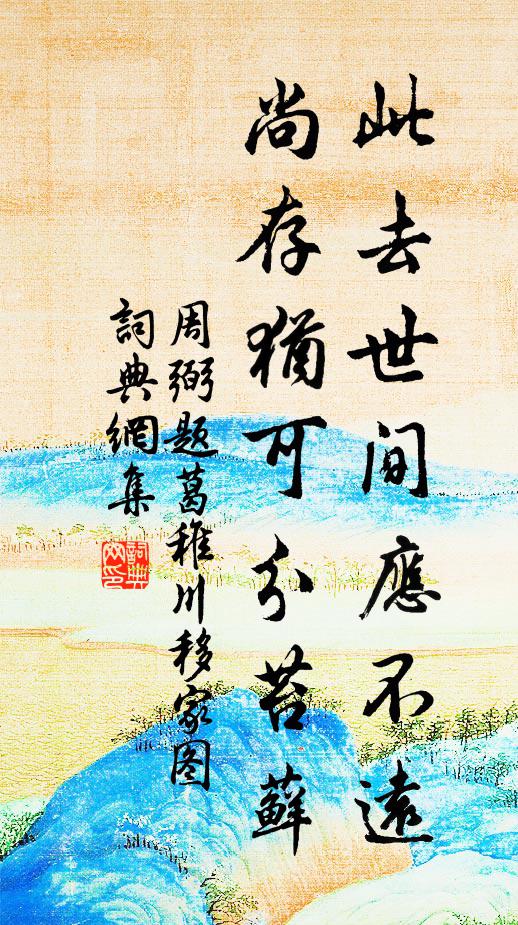 此去世间應不遠
尚存猶可分苔蘚
周弼题葛稚川移家图
詞典網集
詞典
网印